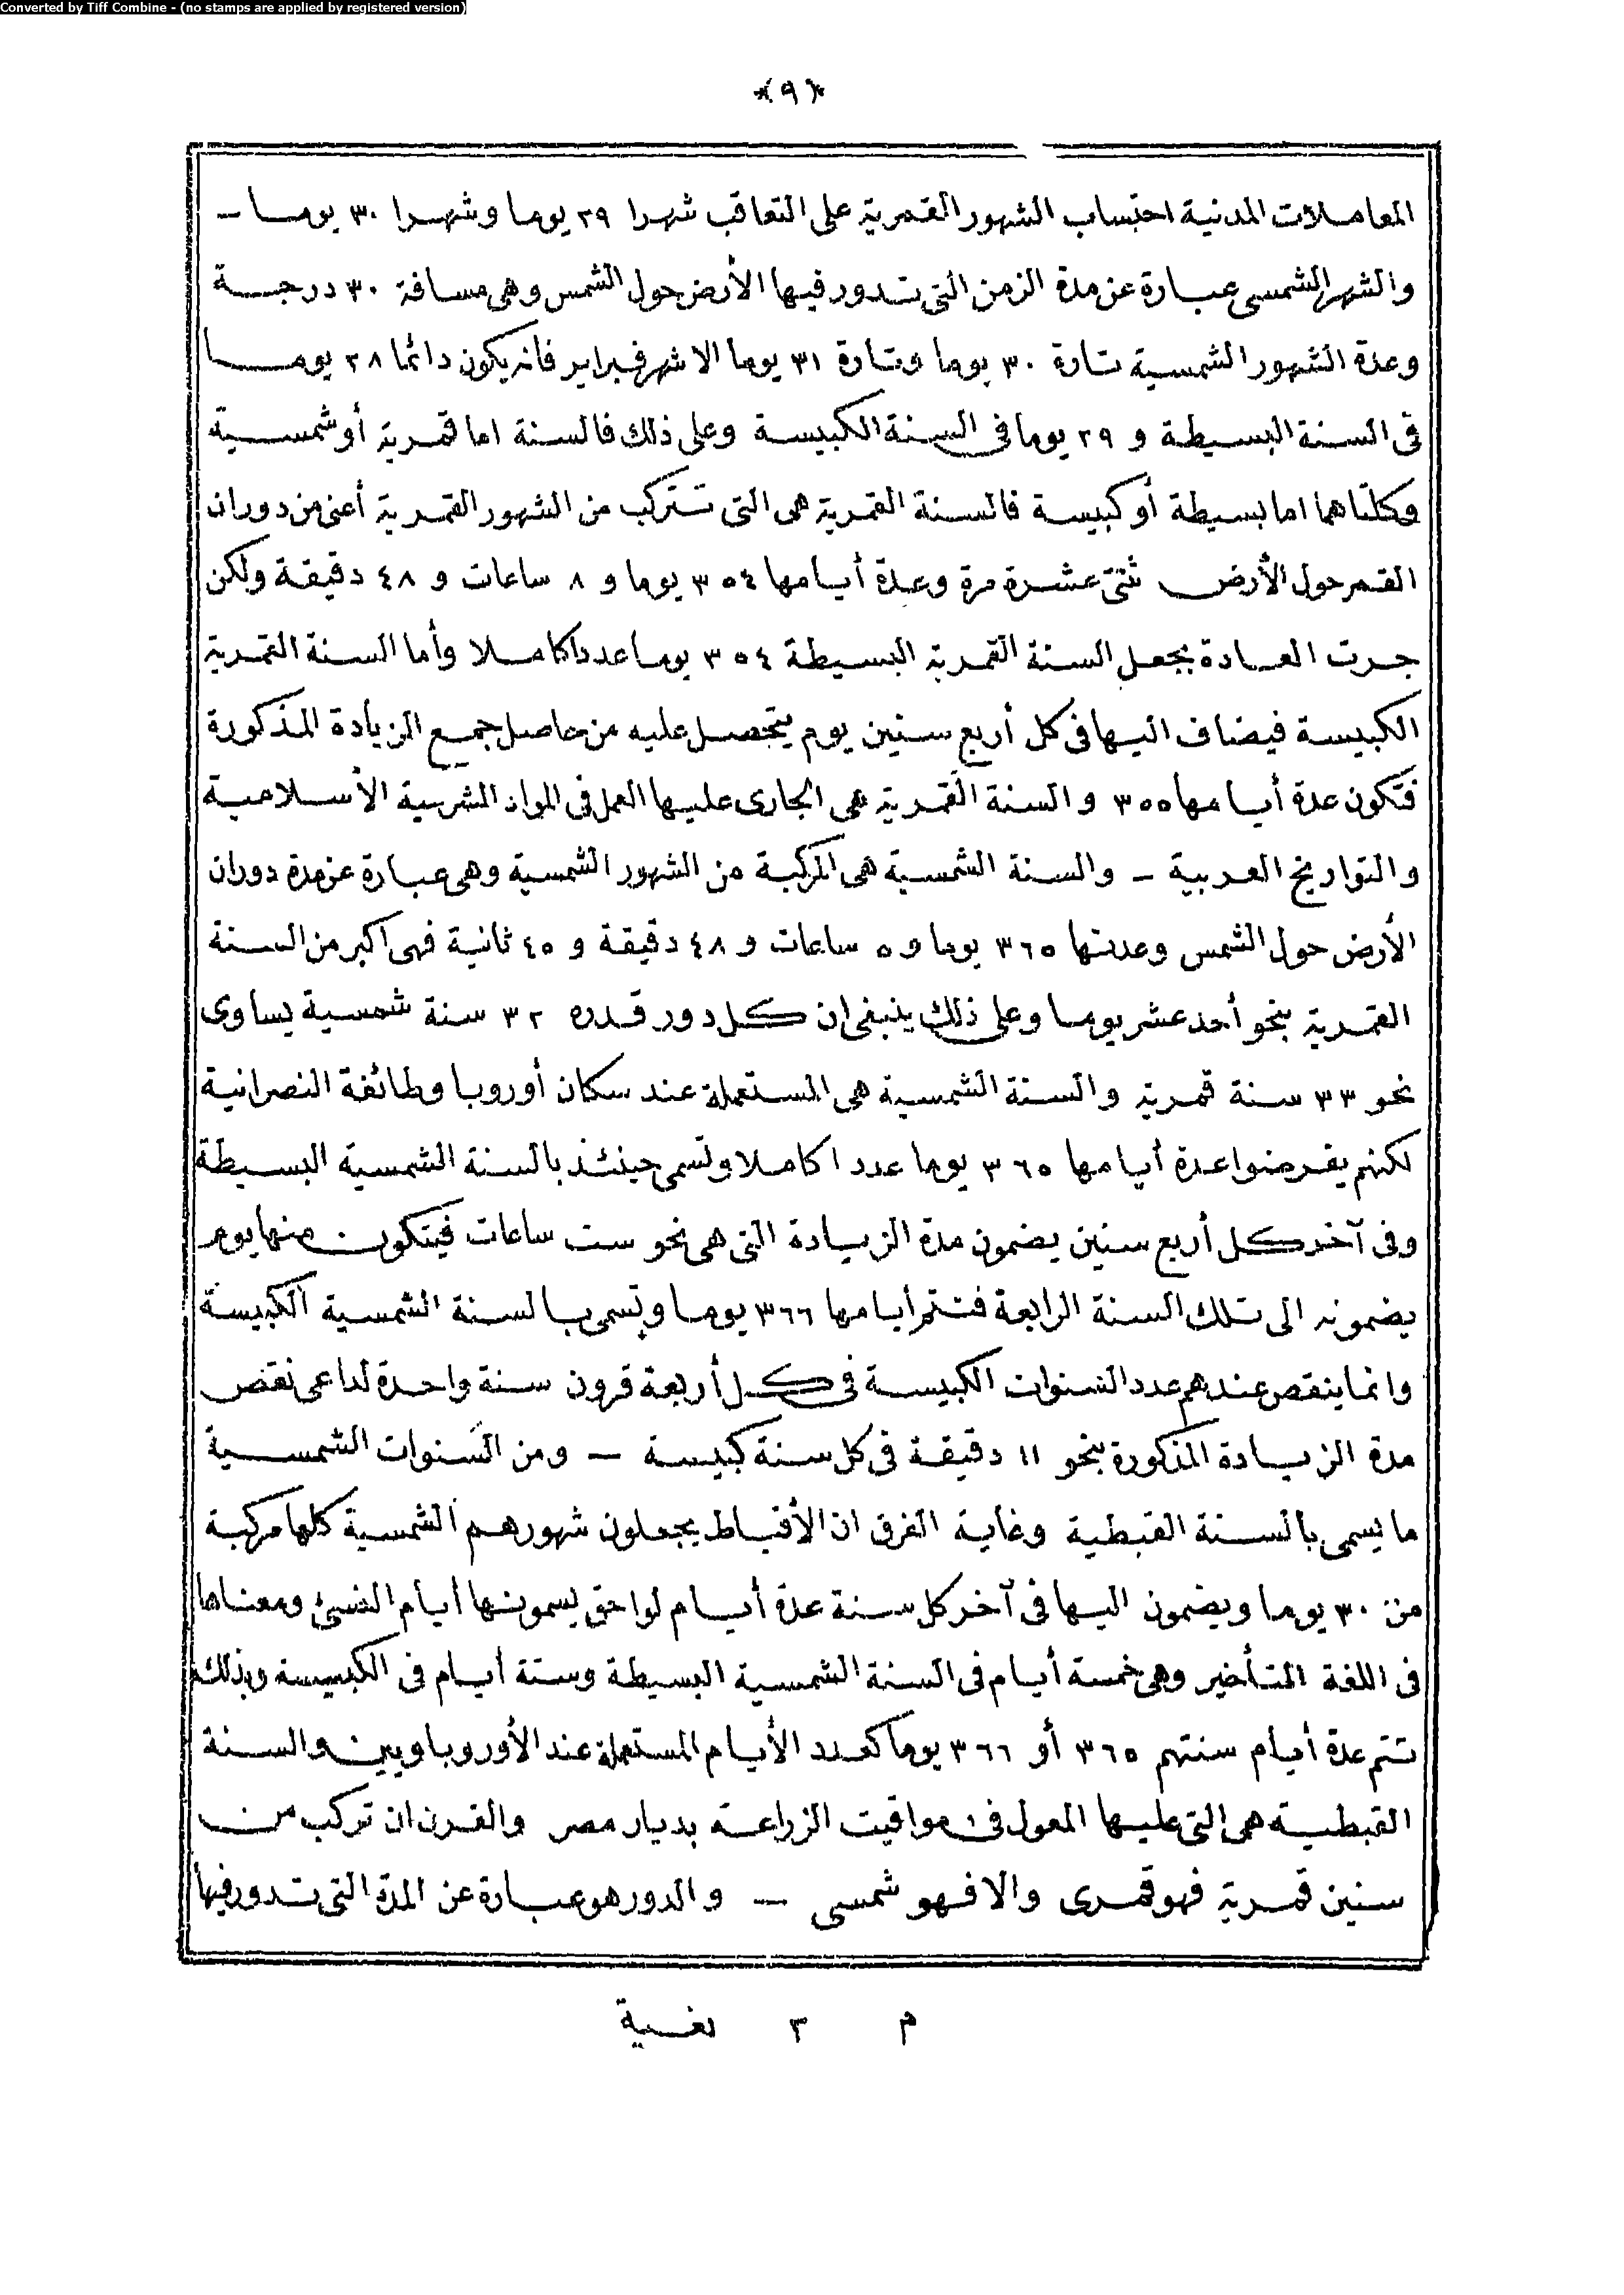 Converted by Tiff Combine - (no stamps are applied by registered version)
*(٩)*
المعاملات المدنية احتساب الشهور القمرية على التعاقب شهرا ٢٩ يوما وشهرا ٣٠ يوما –
والشهر الشمسى عبارة عن مدة الزمن التى تدور فيها الأرض حول الشمس وهى مسافة ٣٠ درجة
وعدة الشهور الشمسية تارة ٣٠ يوما وتارة ٣١ يوما الا شهر فبراير فانه يكون دائما ٢٨ يوما
فى السنة البسيطة و ٢٩ يوما فى السنة الكبيسة وعلى ذلك فالسنة اما قمرية أو شمسية
وكلتاهما اما بسيطة أو كبيسة فالسنة القمرية هى التى تتركب من الشهور القمرية أعنى من دوران
القمر حول الأرض ثنتى عشرة مرة وعدة أيامها ٣٥٤ يوما و ٨ ساعات و ٤٨ دقيقة ولكن
جرت العادة بجعل السنة القمرية البسيطة ٣٥٤ يوما عددا كاملا وأما السنة القمرية
الكبيسة فيضاف اليها فى كل أربع سنين يوم يتحصل عليه من حاصل جمع الزيادة المذكورة
فتكون عدة أيامها ٣٥٥ والسنة القمرية هى الجارى عليها العمل فى المواد الشرعية الأسلامية
والتواريخ العربية – والسنة الشمسية هى المركبة من الشهور الشمسية وهى عبارة عن مدة دوران
الأرض حول الشمس وعدتها ٣٦٥ يوما و ٥ ساعات و ٤٨ دقيقة و ٤٥ ثانية فهى اكبر من السنة
القمرية بنحو أحد عشر يوما وعلى ذلك ينبغى ان كل دور قدره ٣٢ سنة شمسية يساوى
نحو ٣٣ سنة قمرية والسنة الشمسية هى المستعملة عند سكان أوروبا وطائفة النصرانية
لكنهم يفرضوا عدة أيامها ٣٦٥ يوما عددا كاملا وتسمى حينئذ بالسنة الشمسية البسيطة
وفى آخر كل أربع سنين يضمون مدة الزيادة التى هى نحو ست ساعات فيتكون منها يوم
يضمونه الى تلك السنة الرابعة فتتم أيامها ٣٦٦ يوما وتسمى بالسنة الشمسية الكبيسة
وانما ينقص عندهم عدد السنوات الكبيسة فى كل أربعة قرون سنة واحدة لداعى نقص
مدة الزيادة المذكورة بنحو ١١ دقيقة فى كل سنة كبيسة – ومن السنوات الشمسية
ما يسمى بالسنة القبطية وغاية الفرق ان الأقباط يجعلون شهورهم الشمسية كلها مركبة
من ٣٠ يوما ويضمون اليها فى آخر كل سنة عدة أيام لواحق يسمونها أيام النسئ ومعناها
فى اللغة المتأخير وهى خمسة أيام فى السنة الشمسية البسيطة وستة أيام فى الكبيسة وبذلك
تتم عدة أيام سنتهم ٣٦٥ أو ٣٦٦ يوما كعدد الأيام المستعملة عند الأوروباويين والسنة
القبطية هى التى عليها المعول فى مواقيت الزراعة بديار مصر والقرن ان تركب من
سنين قمرية فهو قمرى والا فهو شمسى – والدور هو عبارة عن المدة التى تدور فيها
م ٢